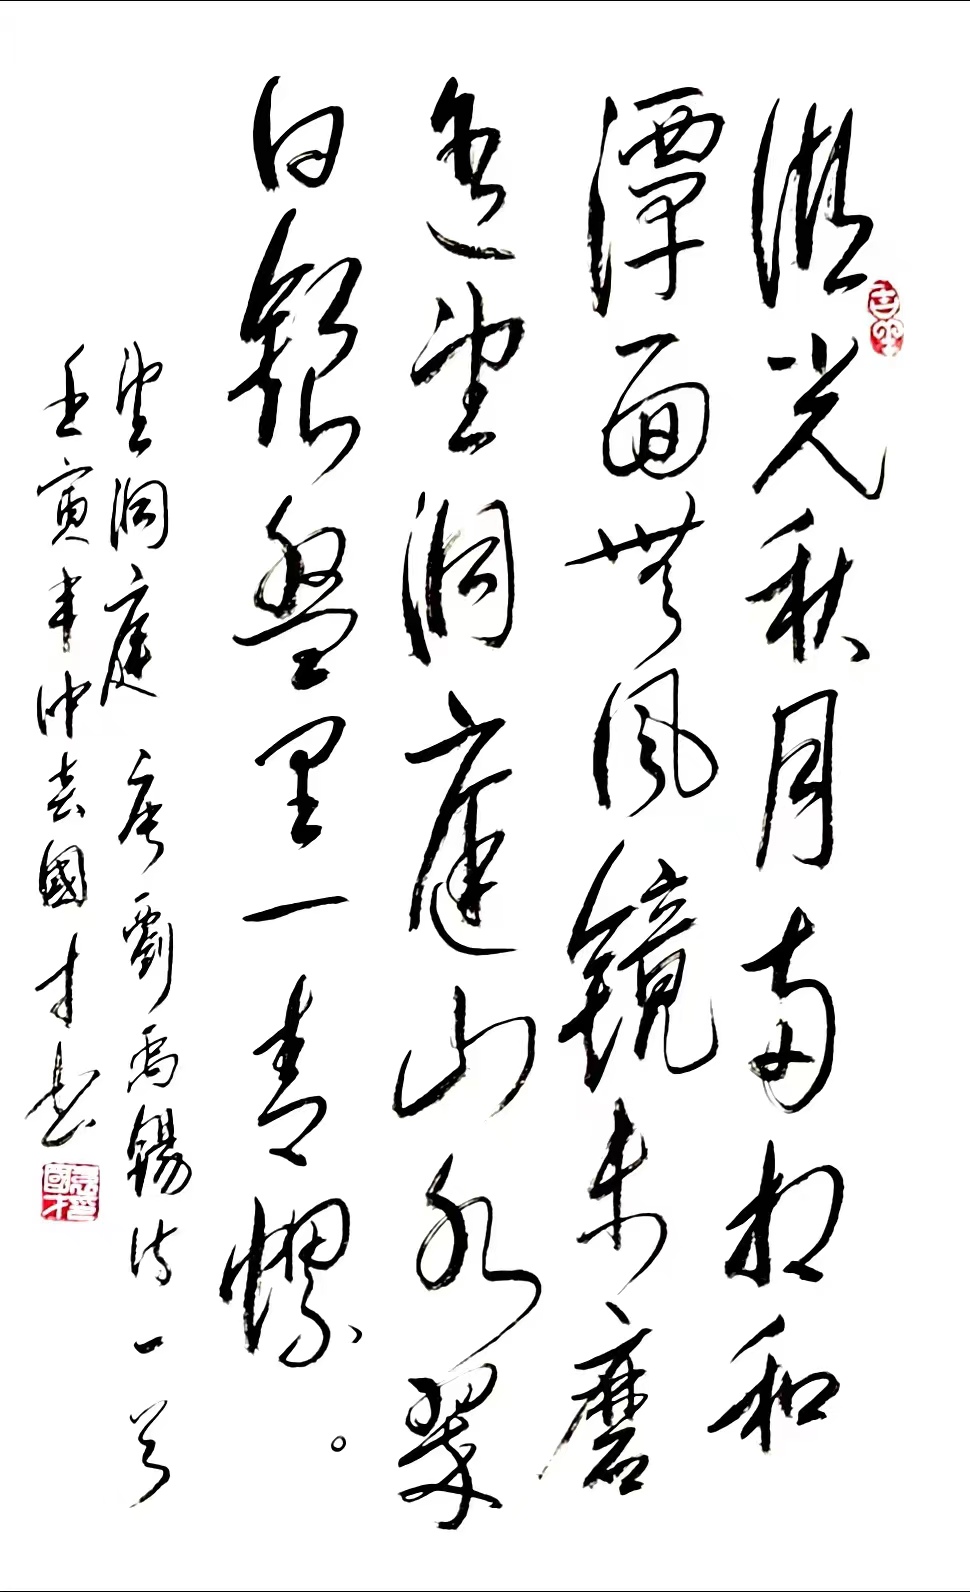 湖光秋月両相和
潭面無風鏡未磨
遥望洞庭山水翠
白銀盤里一青螺。
望洞庭 唐劉禹錫诗一首
壬寅年仲春國才书